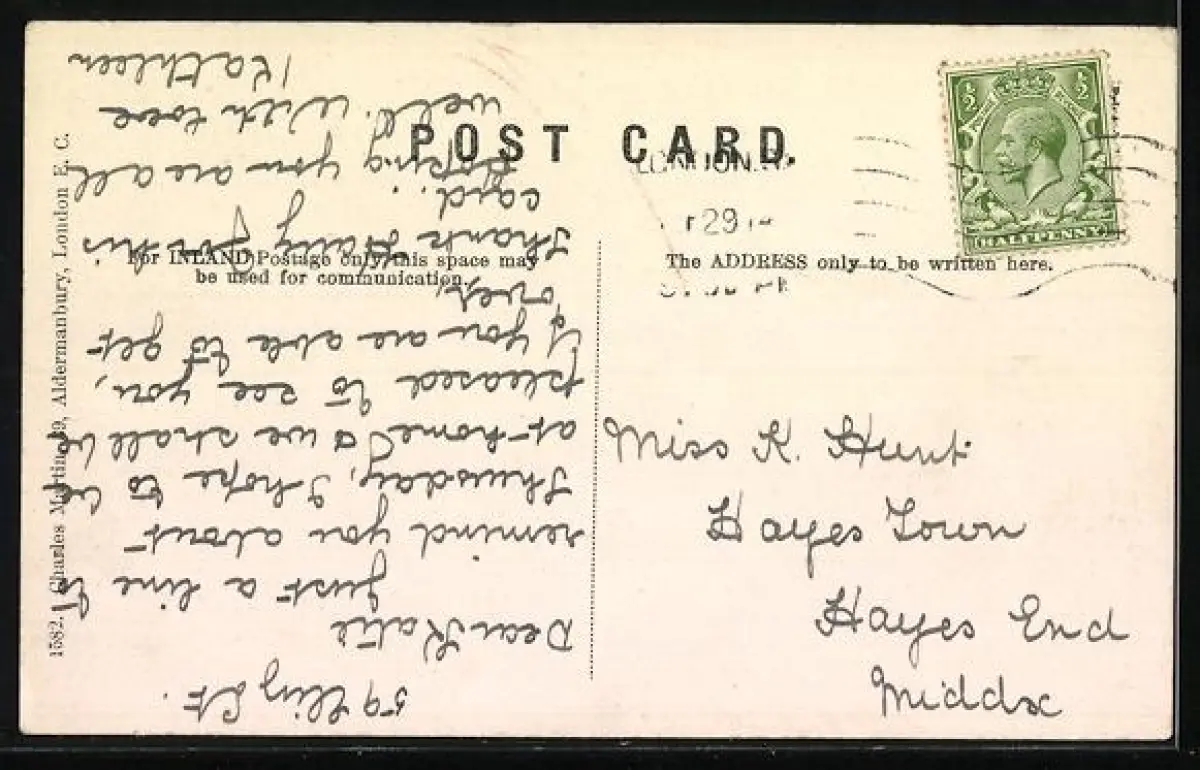 POST CARD.
For INLAND Postage only, this space may
be used for communication.
The ADDRESS only to be written here.
1582. Charles Martin, 39, Aldermanbury, London E. C.
LONDON.
29
½ ½
HALFPENNY
Miss K. Hunt
Hayes Town
Hayes End
Middx
59 St.
Dear Katie
Just a line to
remind you about
Thursday, I hope to be
at home & we shall be
pleased to see you,
if you are able to get
over,
Thank Harry for his
card.
Hoping you are all
well. With love
Kathleen